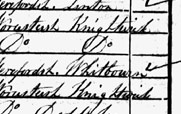 Herefordsh Linton
Worcestersh Knightwick
Do Do
Herefordsh Whitbourn
Worcestersh Knightwick
Do